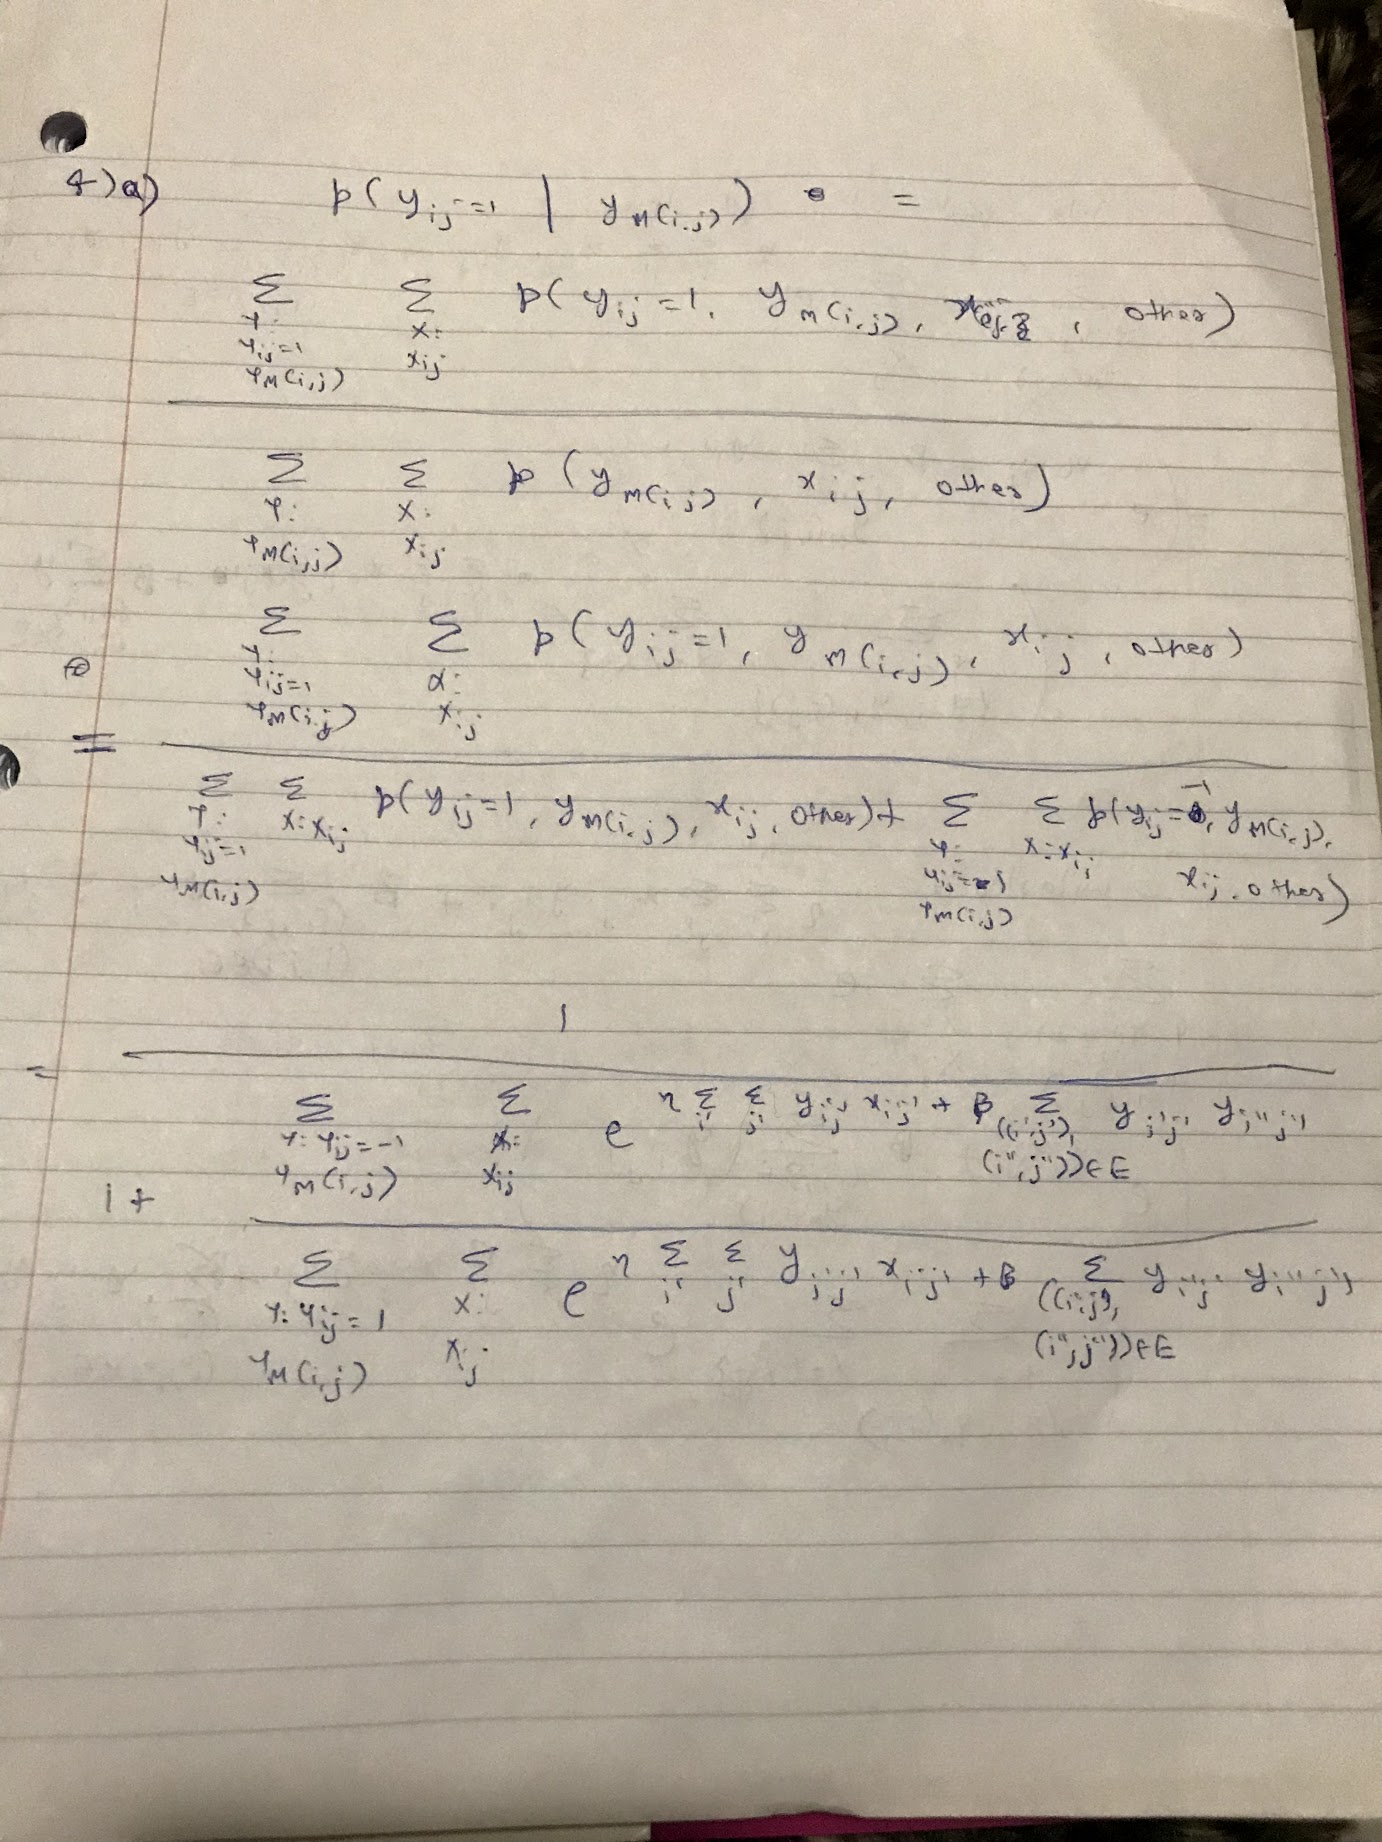 4)a) p( y_{ij}=1 | y_{M(i,j)} ) =
Σ_{Y: Y_{ij}=1 Y_{M(i,j)}} Σ_{X: x_{ij}} p( y_{ij}=1, y_{M(i,j)}, , other)
Σ_{Y: Y_{M(i,j)}} Σ_{X: x_{ij}} p ( y_{M(i,j)}, x_{ij}, other)
Σ_{Y: Y_{ij}=1 Y_{M(i,j)}} Σ_{X: x_{ij}} p ( y_{ij}=1, y_{M(i,j)}, x_{ij}, other)
=
Σ_{Y: Y_{ij}=1 Y_{M(i,j)}} Σ_{X: x_{ij}} p( y_{ij}=1, y_{M(i,j)}, x_{ij}, other) + Σ_{Y: Y_{ij}=-1 Y_{M(i,j)}} Σ_{X: x_{ij}} p( y_{ij}=-1, y_{M(i,j)},
x_{ij}, other)
1
=
Σ_{Y: Y_{ij}=-1 Y_{M(i,j)}} Σ_{X: x_{ij}} e^{η Σ_{i'} Σ_{j'} y_{i'j'} x_{i'j'} + β Σ_{((i',j'), (i'',j''))∈E} y_{i'j'} y_{i''j''}}
1 +
Σ_{Y: Y_{ij}=1 Y_{M(i,j)}} Σ_{X: x_{ij}} e^{η Σ_{i'} Σ_{j'} y_{i'j'} x_{i'j'} + β Σ_{((i',j'), (i'',j''))∈E} y_{i'j'} y_{i''j''}}